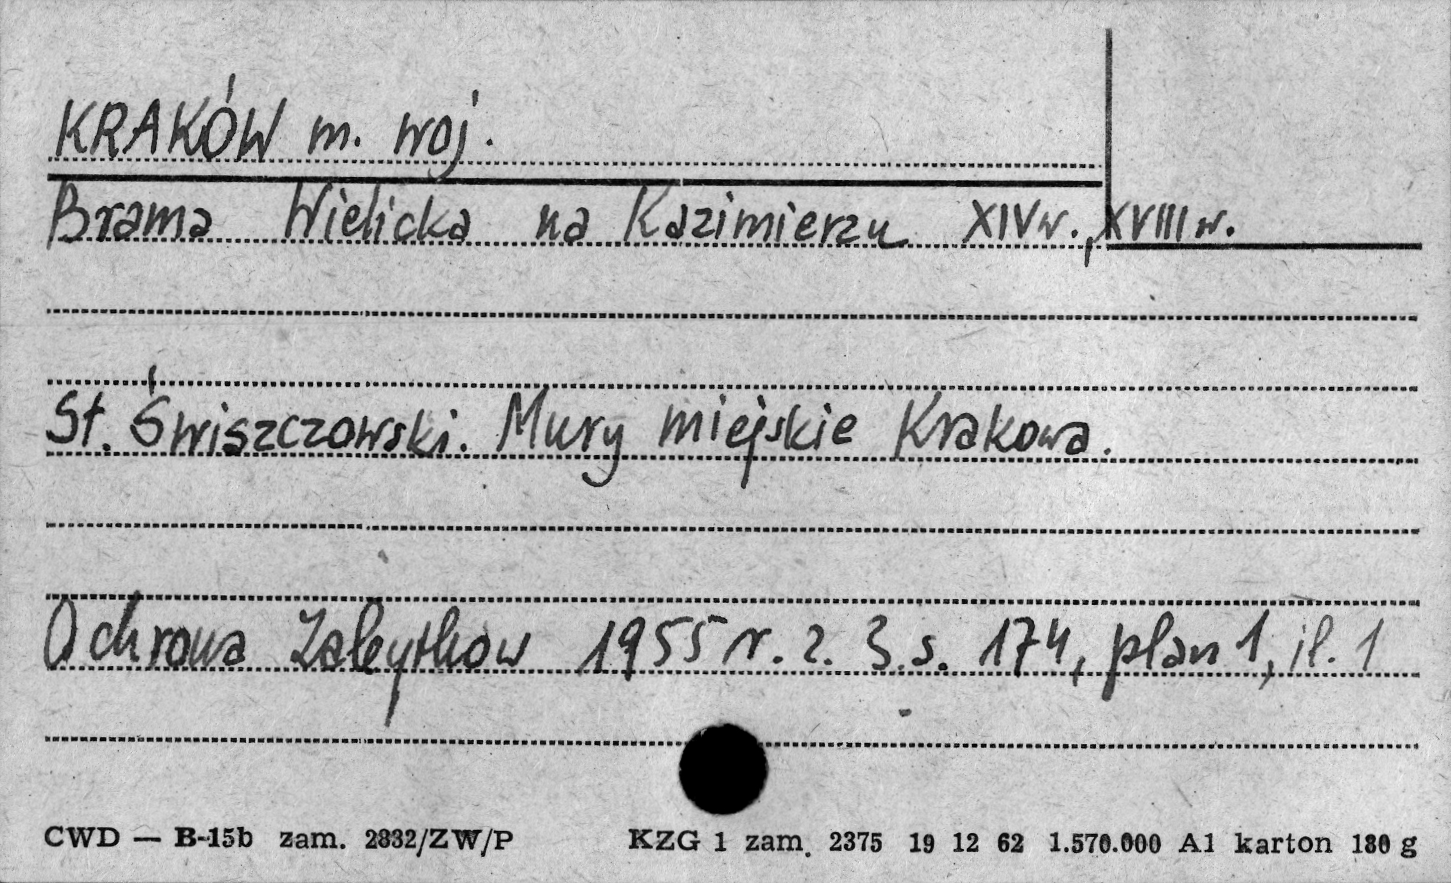 KRAKÓW m. woj.
Brama Wielicka na Kazimierzu XIVw., XVIII w.
St. Świszczowski. Mury miejskie Krakowa.
Ochrona Zabytków 1955 r. z. 3. s. 174, plan 1, il. 1
CWD — B-15b zam. 2832/ZW/P KZG 1 zam. 2375 19 12 62 1.570.000 A1 karton 180 g